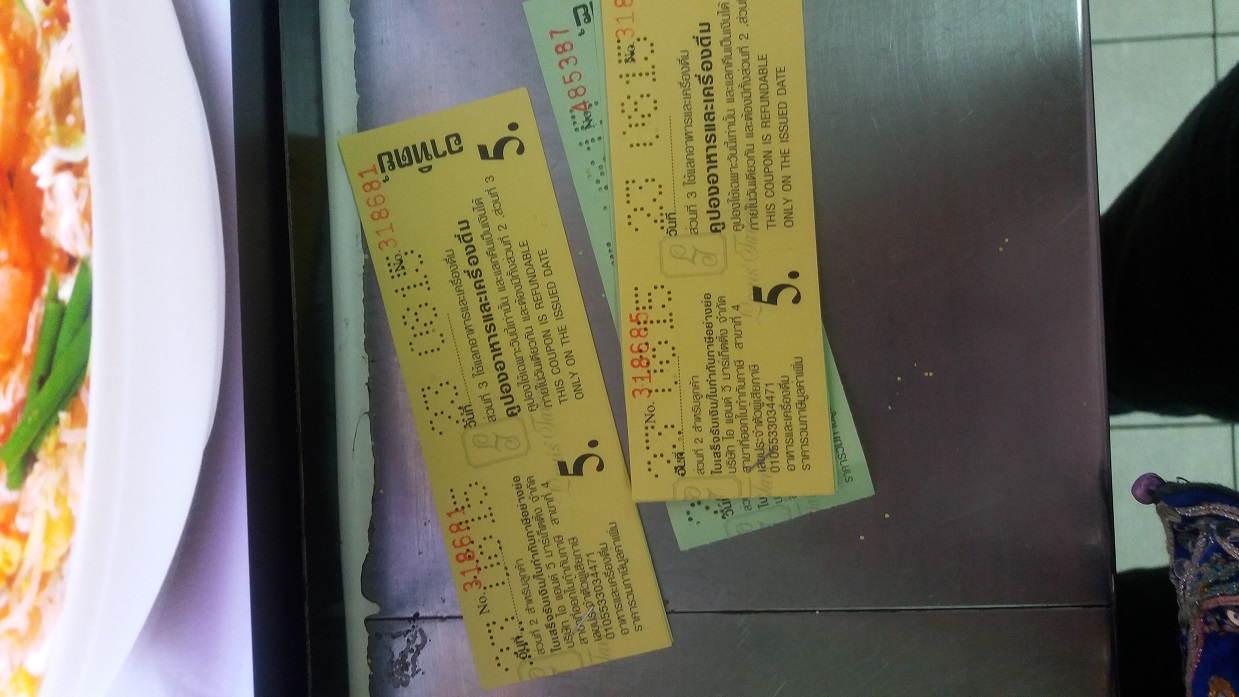 No. 318681
ส่วนที่ 2 สำหรับลูกค้า
ใบเสร็จรับเงิน/ใบกำกับภาษีอย่างย่อ
บริษัท ไอ แอนด์ วี มาร์เก็ตติ้ง จำกัด
สาขาที่ออกใบกำกับภาษี สาขาที่ 4
เลขประจำตัวผู้เสียภาษี
0105533034471
อาหารและเครื่องดื่ม
ราคารวมภาษีมูลค่าเพิ่ม
5.
No. 318681
อาทิตย์
วันที่
ส่วนที่ 3 ใช้แลกอาหารและเครื่องดื่ม
คูปองอาหารและเครื่องดื่ม
คูปองใช้เฉพาะวันนี้เท่านั้น และแลกคืนเป็นเงินได้
ภายในวันเดียวกัน และต้องมีทั้งส่วนที่ 2 ,ส่วนที่ 3
THIS COUPON IS REFUNDABLE
ONLY ON THE ISSUED DATE
5.
No. 318685
วันที่
ส่วนที่ 2 สำหรับลูกค้า
ใบเสร็จรับเงิน/ใบกำกับภาษีอย่างย่อ
บริษัท ไอ แอนด์ วี มาร์เก็ตติ้ง จำกัด
สาขาที่ออกใบกำกับภาษี สาขาที่ 4
เลขประจำตัวผู้เสียภาษี
0105533034471
อาหารและเครื่องดื่ม
ราคารวมภาษีมูลค่าเพิ่ม
5.
No. 318
วันที่
ส่วนที่ 3 ใช้แลกอาหารและเครื่องดื่ม
คูปองอาหารและเครื่องดื่ม
คูปองใช้เฉพาะวันนี้เท่านั้น และแลกคืนเป็นเงินได้
ภายในวันเดียวกัน และต้องมีทั้งส่วนที่ 2 ,ส่วนที่
THIS COUPON IS REFUNDABLE
ONLY ON THE ISSUED DATE
No. 485387